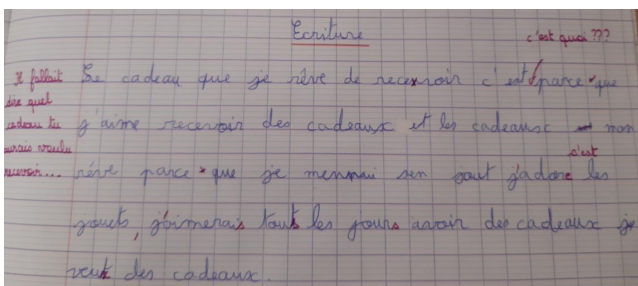 Ecriture
c'est quoi ???
Il fallait
dire quel
cadeau tu
aurais voulu
recevoir...
Le cadeau que je rêve de recevoir c'est parce que
j'aime recevoir des cadeaux et les cadeaux mon
c'est
rêve parce que je sen j'adore les
jouets, j'aimerais touts les jours avoir des cadeaux je
veux des cadeaux.